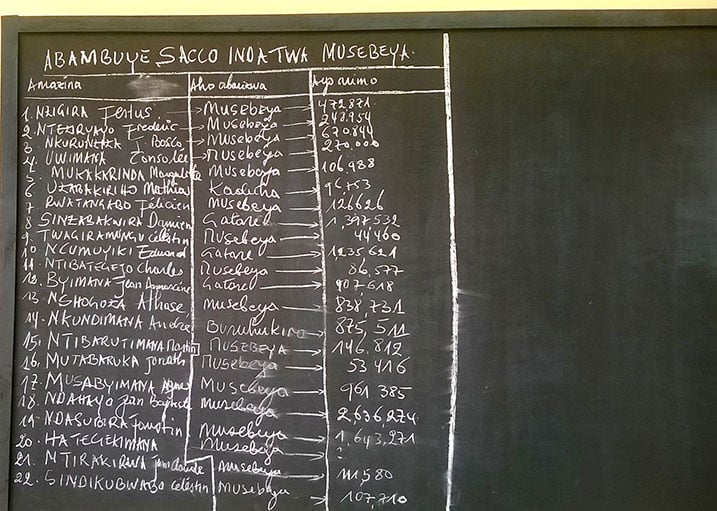 ABAMBUYE SACCO INDATWA MUSEBEYA.
Amazina Aho abarizwa Ayo rimo
1. NZIGIRA Festus Musebeya 472,871
2. NTEZIRYAYO Frederic Musebeya 248,954
3 NKURUNZIZA J Bosco Musebeya 670,844
4. UWIMANA Consolée Musebeya 270,000
5 MUKAKARINDA Musebeya 106,988
6 UZABAKIRIHO Mathias Kaduha
7 RWATANGABO Félicien Musebeya 126626
8 SINZABAKWIRA Damien Gatare 1,397532
9. TWAGIRAMUNGU Célestin Musebeya 44460
10 NCUMUYIKI Eduard Gatare 1235,621
11 NTIBATEGEJO Charles Musebeya 86,577
12. BYIMANA Jean Damascène Gatare 907,618
13. NSHOGOZA Musebeya 838,731
14. NKUNDIMANA André Buruhukiro 875,511
15. NTIBARUTIMANA Martin MUSEBEYA 146,812
16. MUTABARUKA Jonath Musebeya 53416
17. MUSABYIMANA Agnes Musebeya 961385
18. NDAHAYO Jean Baptiste Musebeya 2,636,274
19. NDASUBIRA Faustin Musebeya 1,643,271
20. HATEGEKIMANA Musebeya ?
21. MTIRAKIRWA Musebeya 111,580
22. SINDIKUBWABO Célestin Musebeya 107,710